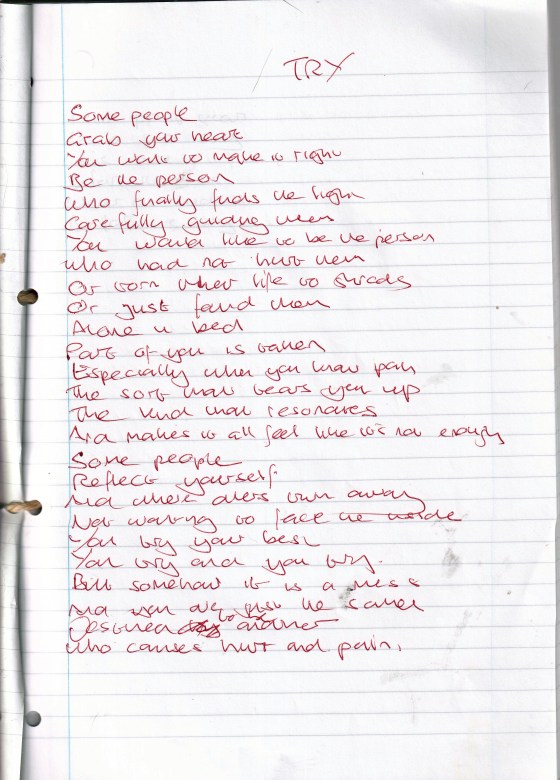 TRY
Some people
Grab your heart
You want to make it right
Be the person
Who finally finds the light
Carefully guiding them
You would like to be the person
Who had not hurt them
Or torn their life to shreds
Or just found them
Alone in bed
Part of you is taken
Especially when you know pain
The sort that tears you up
The kind that resonates
And makes it all feel like it's not enough
Some people
Reflect yourself
And where others turn away
Not wanting to face the inside
You try your best
You try and you try.
But somehow it is a mess
And you are just the same
Destined to be another
Who causes hurt and pain.